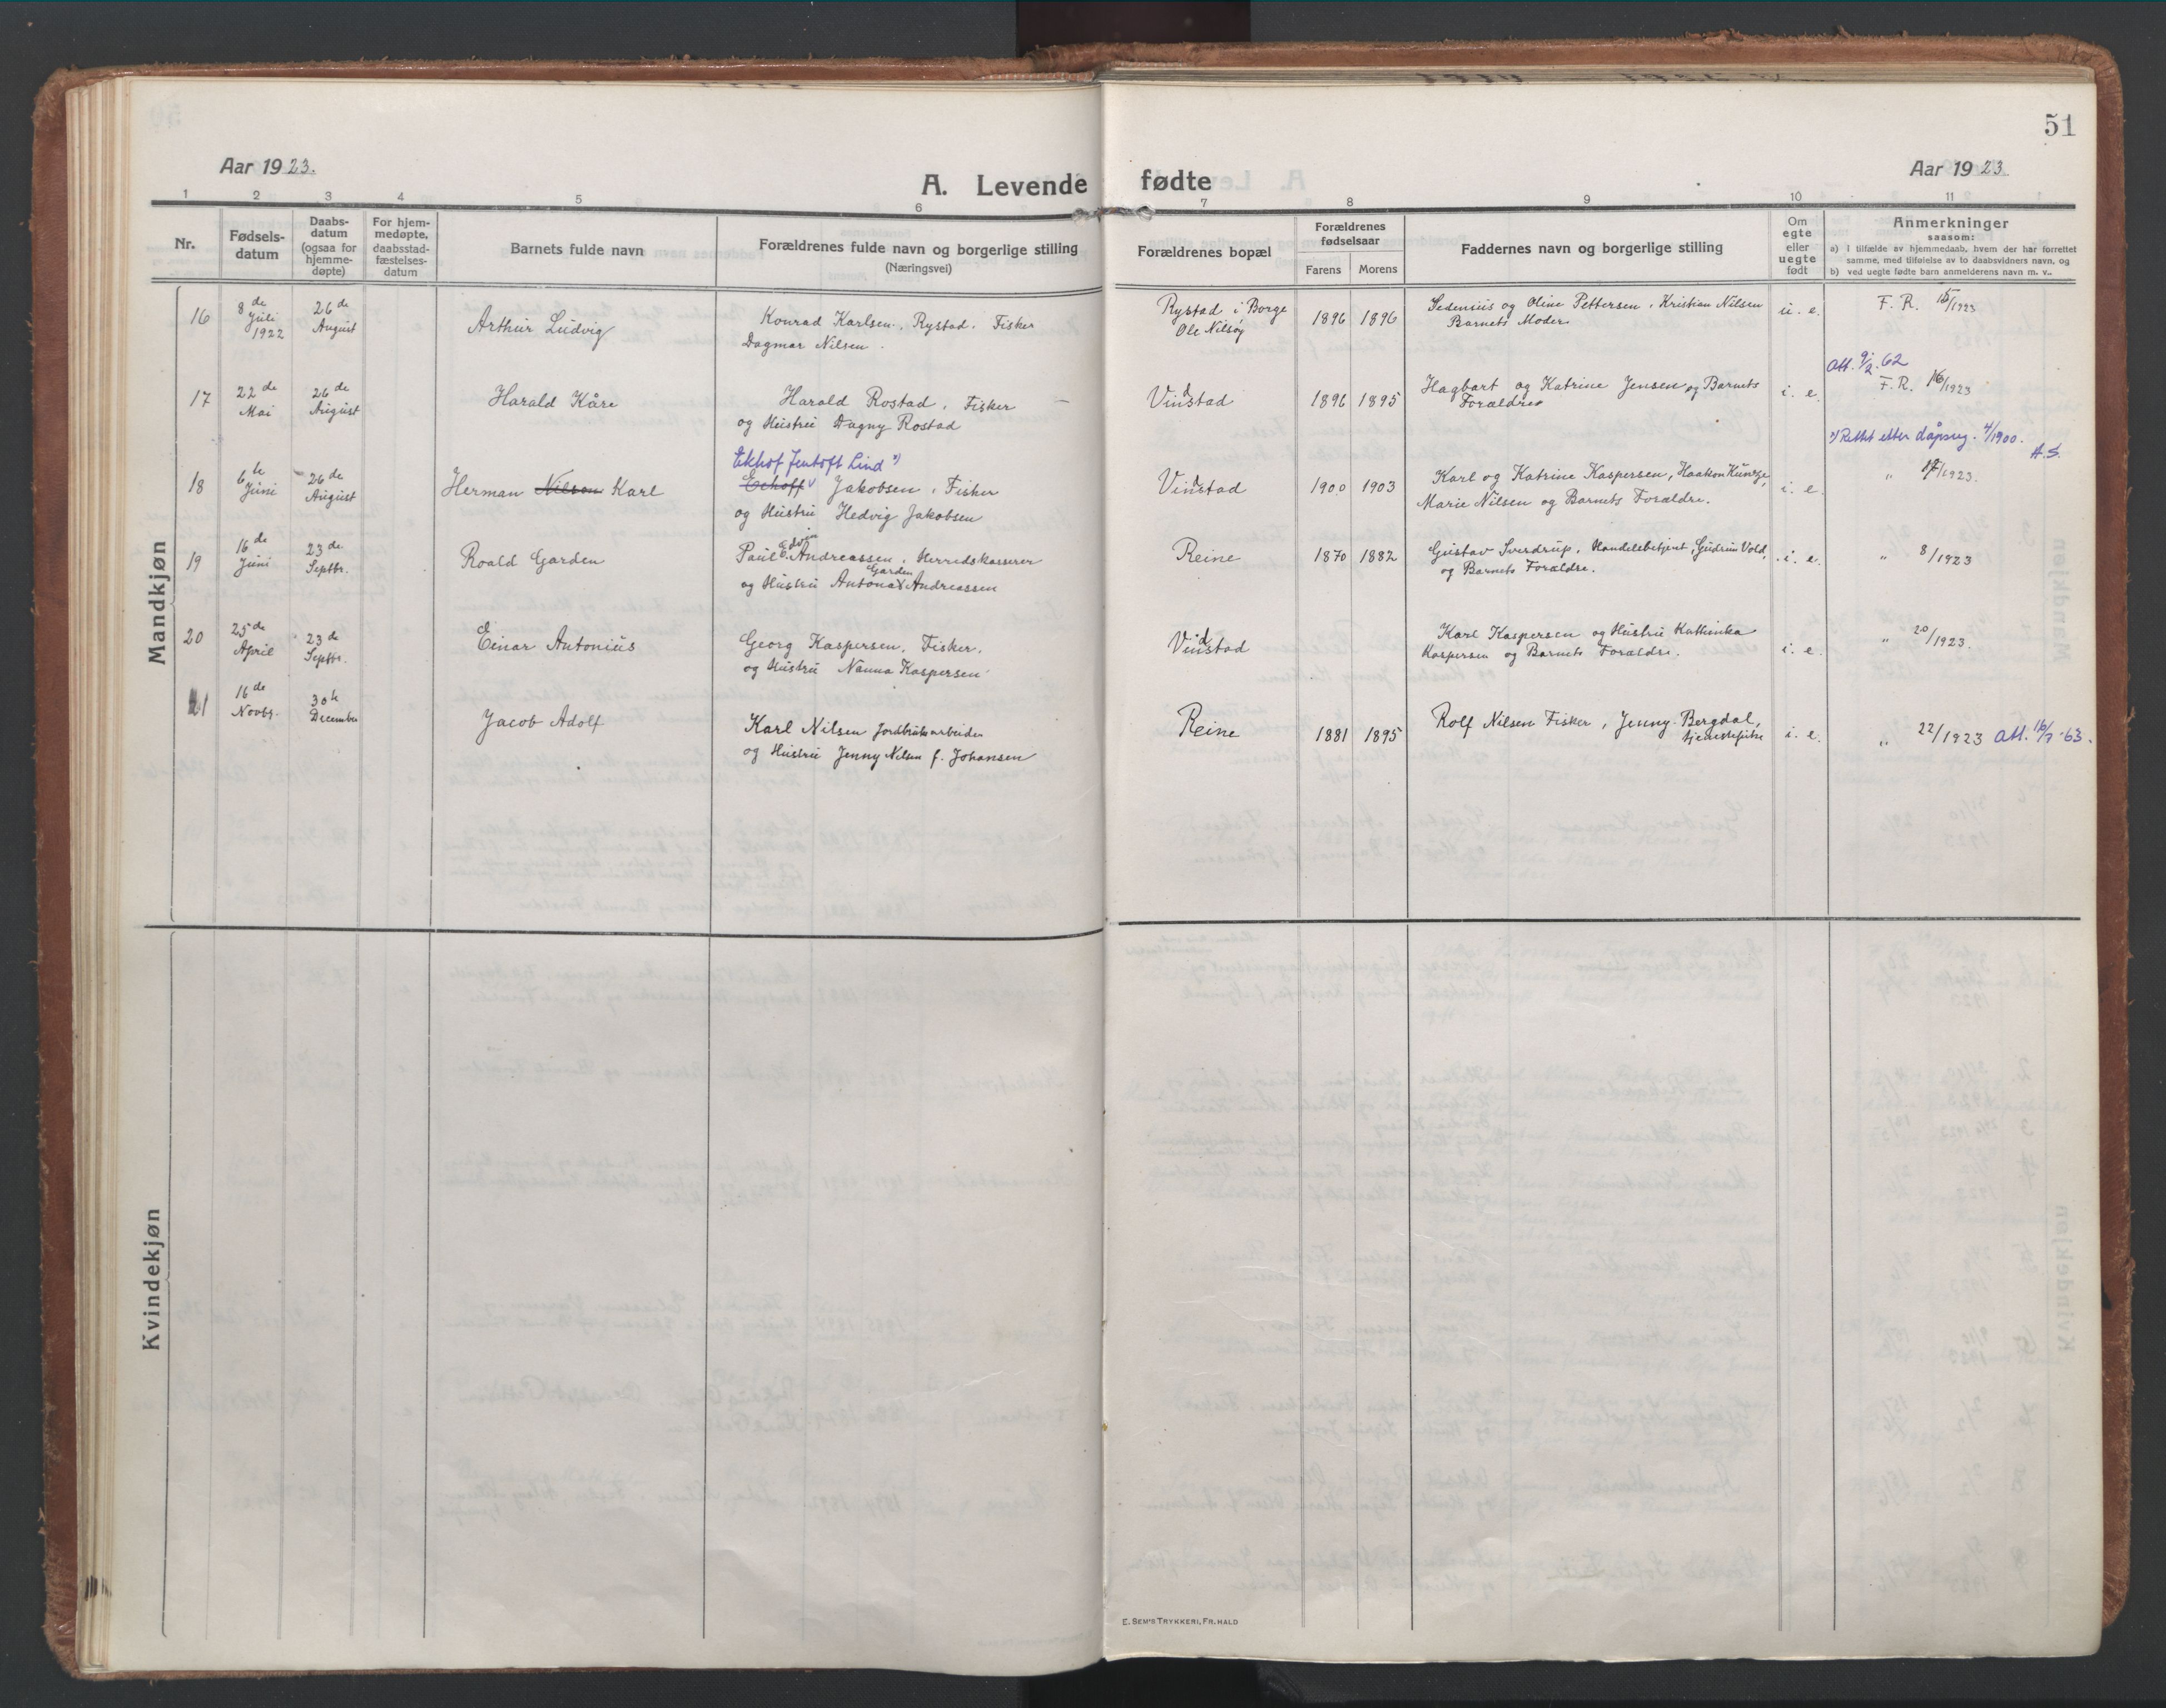 51
Aar 1923.
A. Levende fødte
Aar 1923
1 2 3 4 5 6 7 8 9 10 11
Nr.
Fødsels-
datum
Daabs-
datum
(ogsaa for
hjemme-
døpte)
For hjem-
medøpte,
daabsstad-
fæstelses-
datum
Barnets fulde navn
Forældrenes fulde navn og borgerlige stilling
(Næringsvei)
Forældrenes bopæl
Forældrenes
fødselsaar
Farens Morens
Faddernes navn og borgerlige stilling
Om
egte
eller
uegte
født
Anmerkninger
saasom:
a) I tilfælde av hjemmedaab, hvem der har forrettet
samme, med tilføielse av to daabsvidners navn, og
b) ved uegte fødte barn anmelderens navn m. v..
Mandkjøn
16
8de
Juli
1922
26de
August
Arthur Ludvig
Konrad Karlsen, Rystad. Fisker
Dagmar Nilsen.
Rystad i Borge
Ole Nilsøy
1896 1896
Sedenius og Oline Pettersen, Kristian Nilsen
Barnets Moder
u. e.
F. R. 15/1923
17
22de
Mai
26de
August
Harald Kåre
Harald Rostad, Fisker
og Hustru Dagny Rostad
Vindstad
1896 1895
Hagbart og Katrine Jensen og Barnets
Forældre
i. e.
Att. 9/2. 62
F. R. 16/1923
18
6te
Juni
26de
August
Herman Nilsen Karl
Ekhof Jentoft Lind *)
Echoff Jakobsen, Fisker
og Hustru Hedvig Jakobsen
Vindstad
1900 1903
Karl og Katrine Kaspersen, Haakon Kunzge,
Marie Nilsen og Barnets Forældre.
i. e.
*) Rettet etter dåpsreg. 4/1900.
A.S.
" 17/1923.
19
16de
Juni
23de
Septbr.
Roald Garden
Paul Edvin Andreassen, Herredskasserer
og Hustru Antona Garden Andreassen
Reine
1870 1882
Gustav Sverdrup, Handelsbetjent, Gudrun Vold,
og Barnets Forældre.
i. e.
" 8/1923
20
25de
April
23de
Septbr.
Einar Antonius
Georg Kaspersen, Fisker.
og Hustru Nanna Kaspersen
Vindstad
Karl Kaspersen og Hustru Kathinka
Kaspersen og Barnets Forældre.
i. e.
" 20/1923.
21
16de
Novbr.
30te
December
Jacob Adolf
Karl Nilsen Jordbruksarbeider
og Hustru Jenny Nilsen f. Johansen
Reine
1881 1895
Rolf Nilsen Fisker, Jenny Bergdal,
tjenestepike
i. e.
" 22/1923 Att. 16/7-63.
Kvindekjøn
E. SEM'S TRYKKERI, FR. HALD